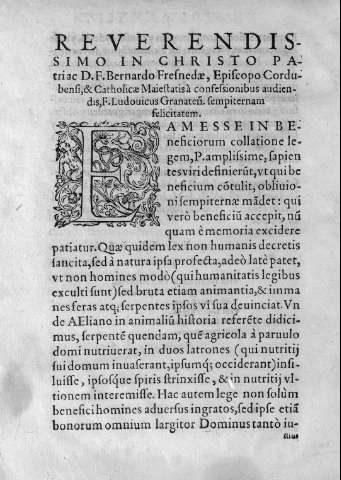 REVERENDIS-
SIMO IN CHRISTO PA-
tri ac D.F. Bernardo Fresnedæ, Episcopo Cordu-
bensi, & Catholicæ Maiestatis à confessionibus audien-
dis, F. Ludouicus Granateñ. sempiternam
felicitatem.
EAM ESSE IN BE-
neficiorum collatione le-
gem, P. amplissime, sapien
tes viri definierũt, vt qui be
neficium cõtulit, obliuio-
ni sempiternæ mãdet: qui
verò beneficiũ accepit, nũ
quam è memoria excidere
patiatur. Quæ quidem lex non humanis decretis
sancita, sed à natura ipsa profecta, adeò latè patet,
vt non homines modò (qui humanitatis legibus
exculti sunt) sed bruta etiam animantia, & imma
nes feras atq; serpentes ipsos vi sua deuinciat. Vn
de AEliano in animaliũ historia referẽte didici-
mus, serpentẽ quendam, quẽ agricola à paruulo
domi nutriuerat, in duos latrones (qui nutritij
sui domum inuaserant, ipsumq; occiderant) insi-
luisse, ipsosque spiris strinxisse, & in nutritij vl-
tionem interemisse. Hac autem lege non solùm
benefici homines aduersus ingratos, sed ipse etiã
bonorum omnium largitor Dominus tantò iu-
stius